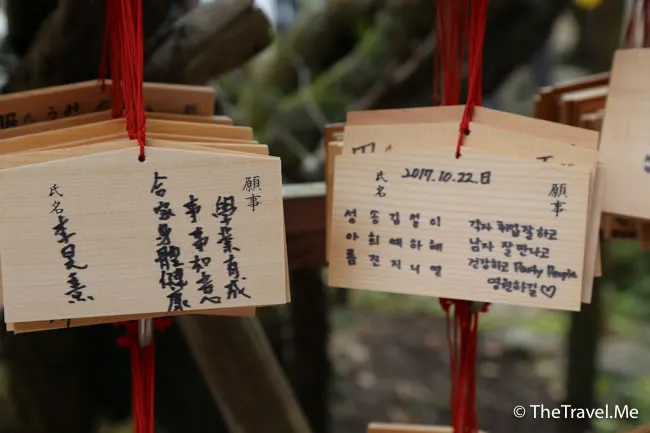 願事
學業有成
事事如意
合家身體健康
氏名
李
願事
2017.10.22日
氏名
성 송 김 설 이
아 희 예 하 해
름 진 지 니 열
각자 취업 잘하고
남자 잘 만나고
건강하고 Party People
영원하길♡
© TheTravel.Me